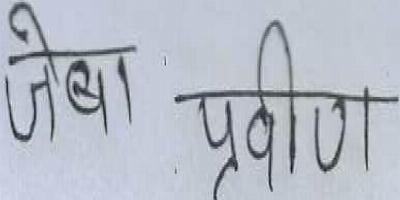 जेबा प्रवीण